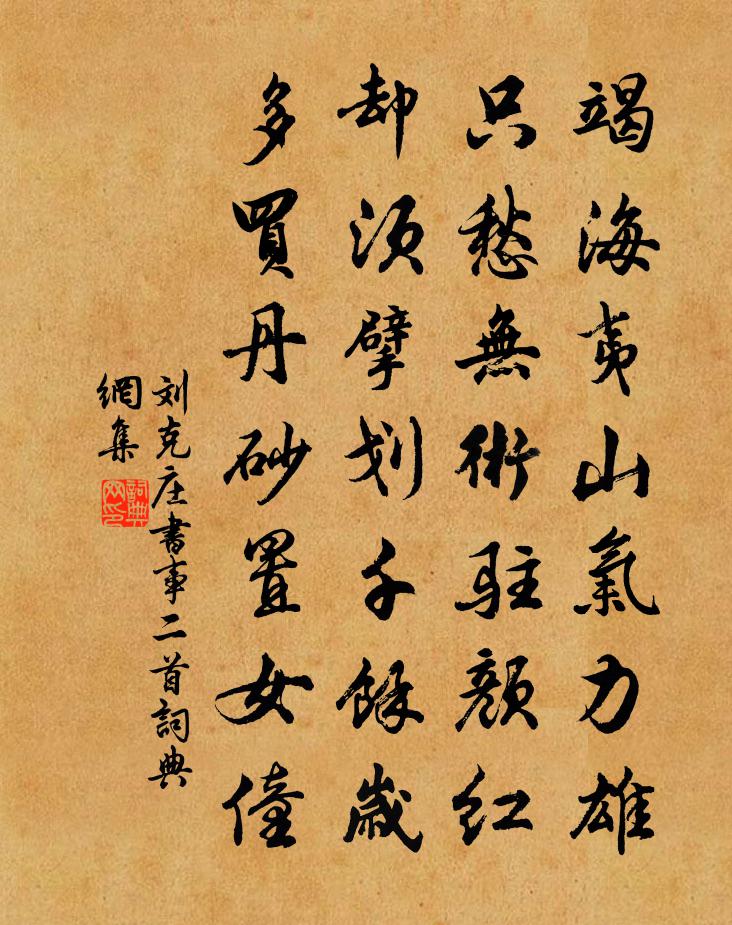 竭海夷山氣力雄
只愁無術駐顏紅
却須擘划千餘歲
多買丹砂置女僮
刘克庄書事二首詞典
網集
詞典
网印